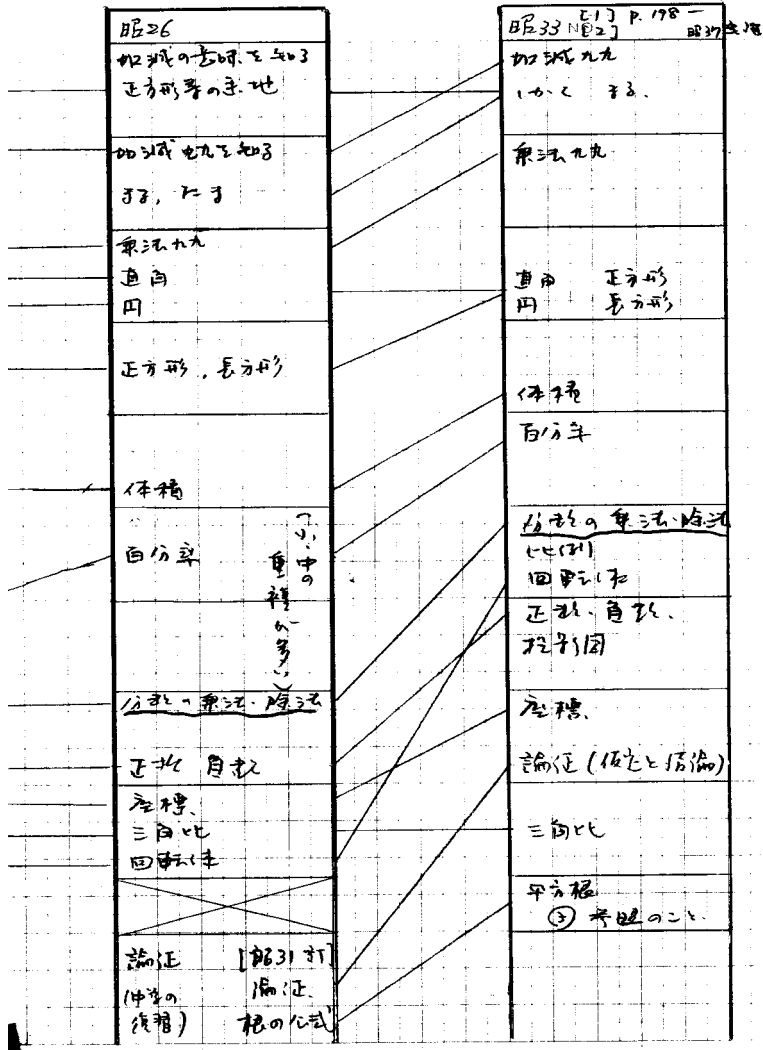 昭26
加減の意味を知る
正方形等の素地
加減九九を知る
まる,たま
乗法九九
直角
円
正方形,長方形
体積
百分率
(小・中の
重複が多い)
分数の乗法・除法
正数 負数
座標、
三角比
回転体
論証 [昭31訂]
(中学の 論証、
復習) 根の公式
昭33 [1] p.198−
[2] 昭37
加減九九
しかく まる、
乗法九九
直角 正方形
円 長方形
体積
百分率
分数の乗法・除法
比例
回転体
正数、負数、
柱形図
座標、
論証(仮定と結論)
三角比
平方根
参照のこと、